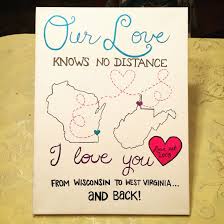 Our Love
KNOWS NO DISTANCE
I love you
FROM WISCONSIN TO WEST VIRGINIA...
AND BACK!